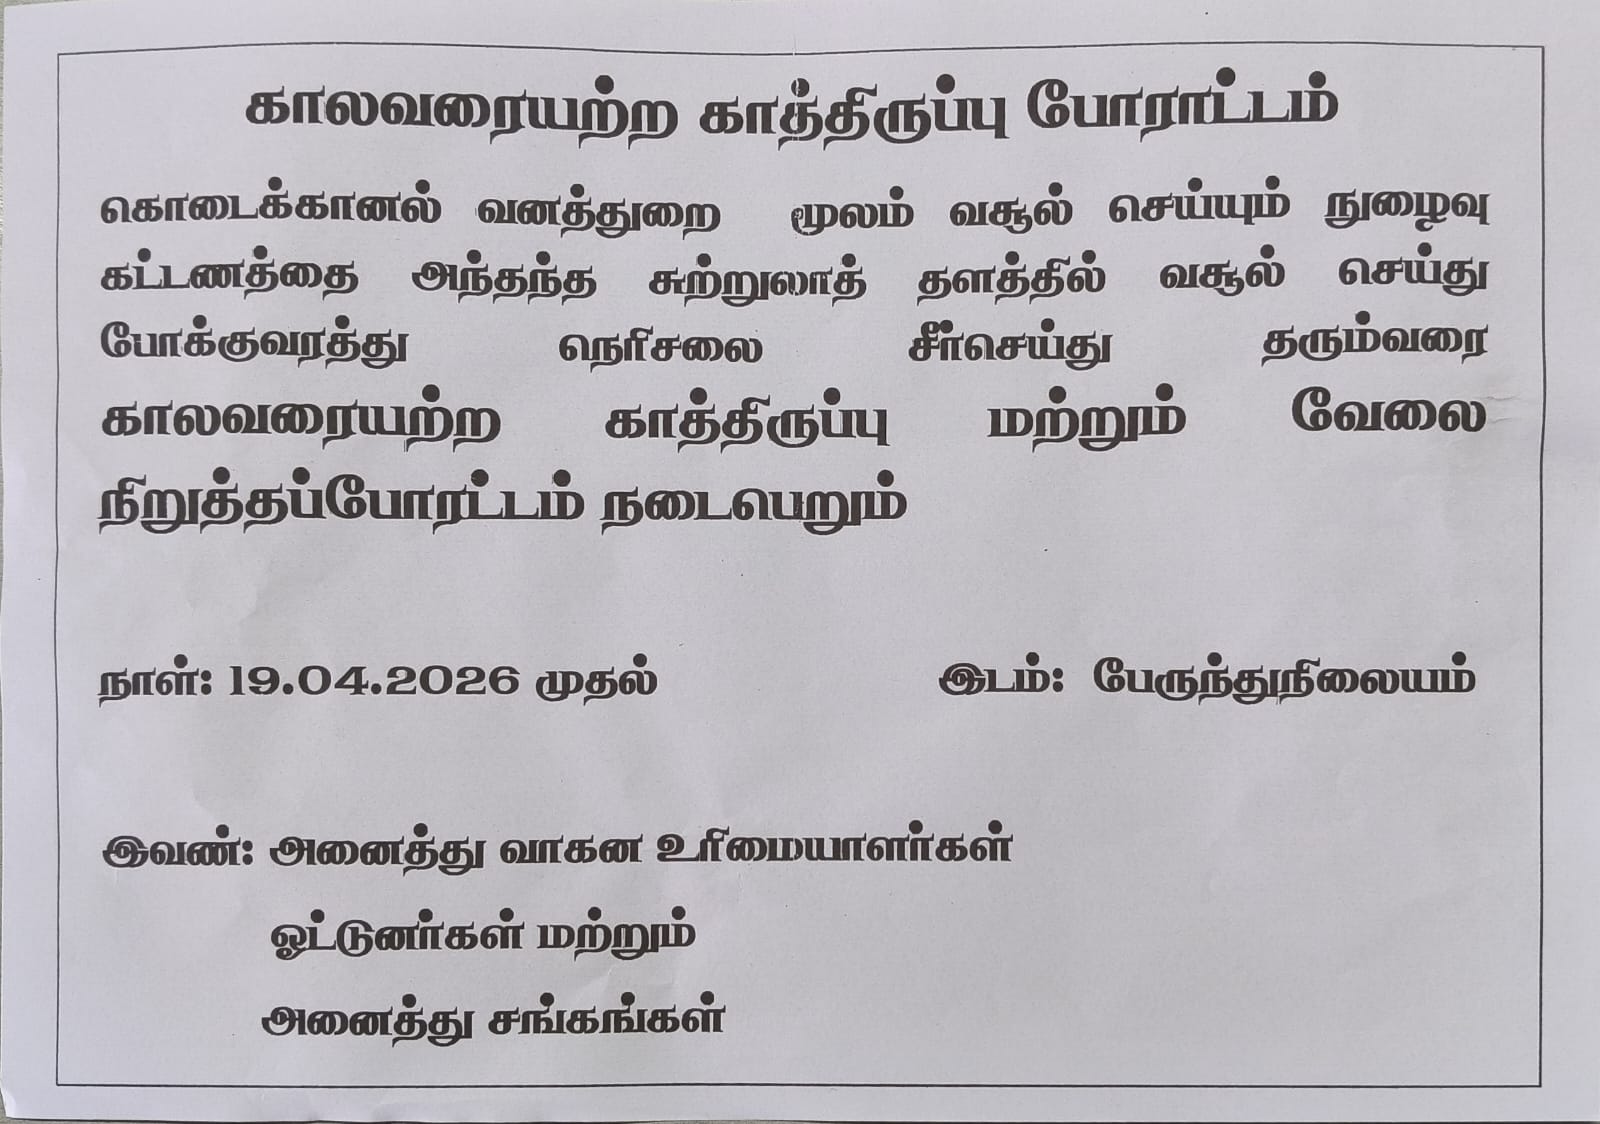 காலவரையற்ற காத்திருப்பு போராட்டம்
கொடைக்கானல் வனத்துறை மூலம் வசூல் செய்யும் நுழைவு
கட்டணத்தை அந்தந்த சுற்றுலாத் தளத்தில் வசூல் செய்து
போக்குவரத்து நெரிசலை சீர்செய்து தரும்வரை
காலவரையற்ற காத்திருப்பு மற்றும் வேலை
நிறுத்தப்போரட்டம் நடைபெறும்
நாள்: 19.04.2026 முதல் இடம்: பேருந்துநிலையம்
இவண்: அனைத்து வாகன உரிமையாளர்கள்
ஓட்டுனர்கள் மற்றும்
அனைத்து சங்கங்கள்